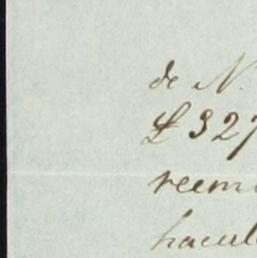 de N.
£ 327
reem
hacul